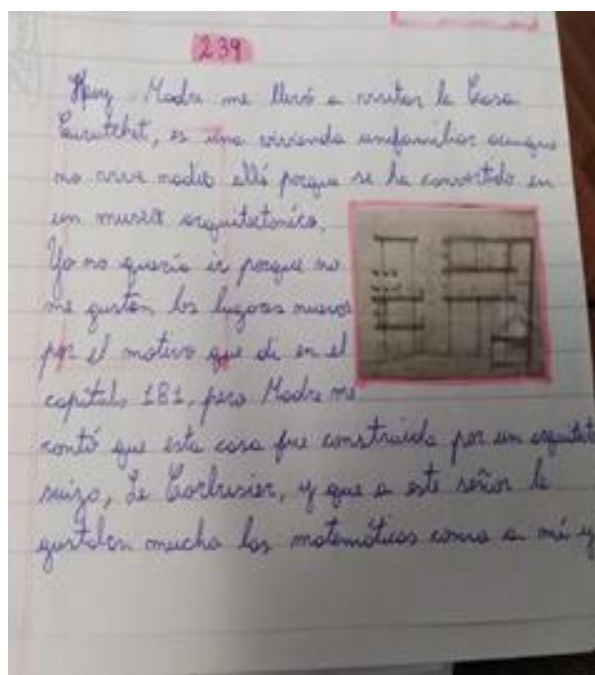 239
Hoy Madre me llevó a visitar la Casa
Curutchet, es una vivienda unifamiliar aunque
no vive nadie allí porque se ha convertido en
un museo arquitectónico.
Yo no quería ir porque no
me gustan los lugares nuevos
por el motivo que di en el
capítulo 181, pero Madre me
contó que esta casa fue construida por un arquitecto
suizo, Le Corbusier, y que a este señor le
gustaban mucho las matemáticas como a mí y